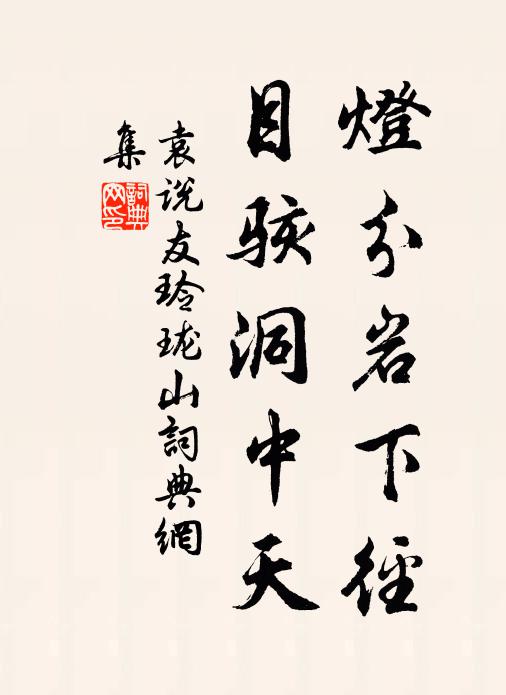 燈分岩下徑
目駭洞中天
袁说友玲珑山詞典網
集
詞典网印